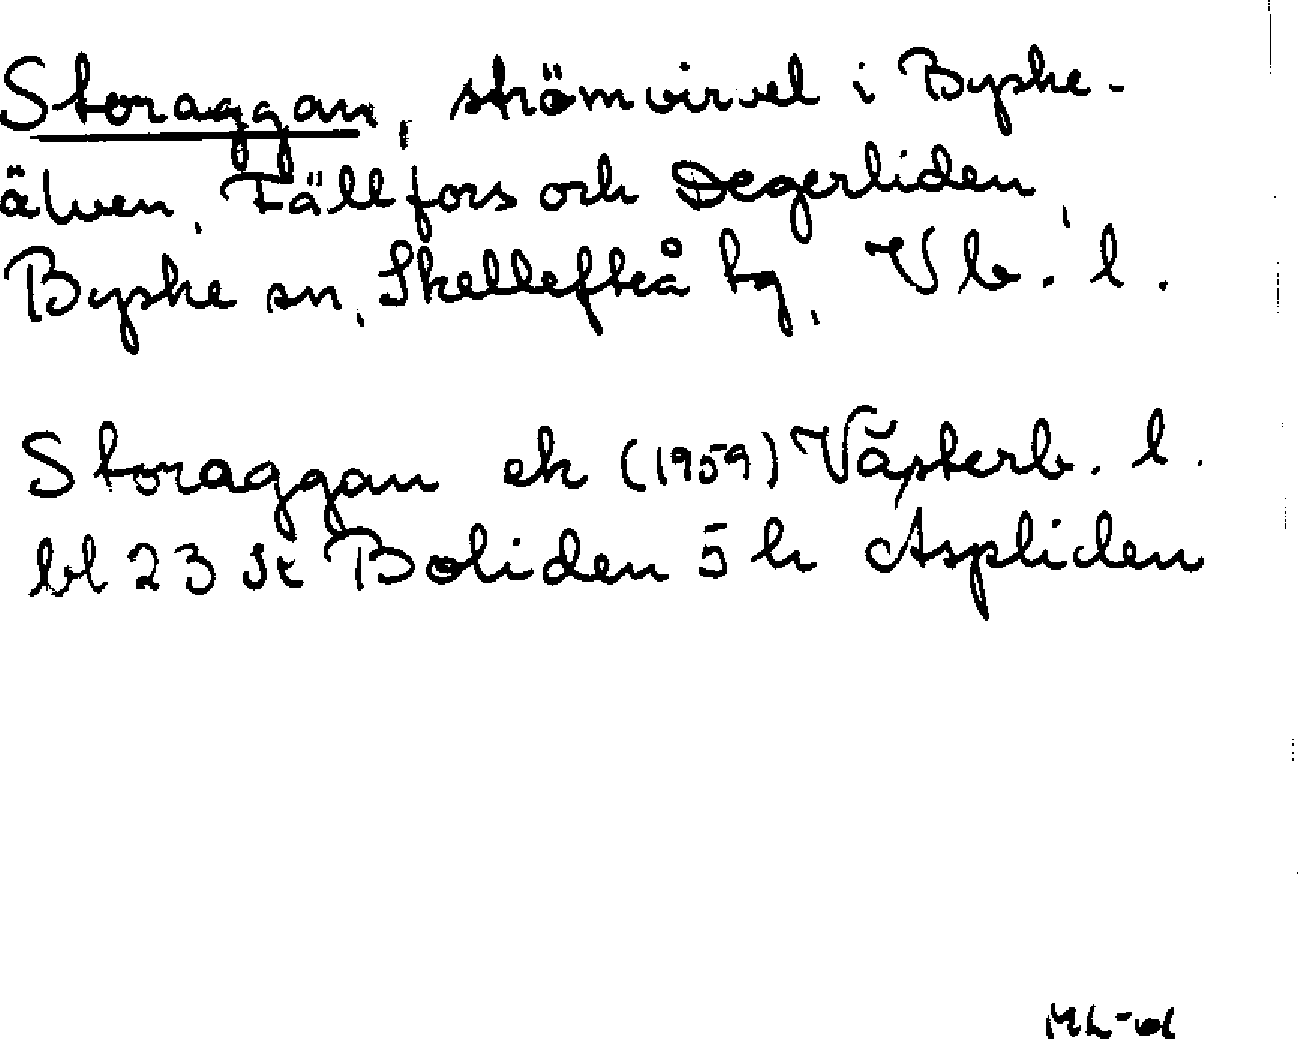 Storaggan, strömvirvel i Byske-
älven, Fällfors och Degerliden,
Byske sn, Skellefteå tg, Vb. l.
Storaggan ek (1959) Västerb. l.
bl 23 St Boliden 5 h Aspliden